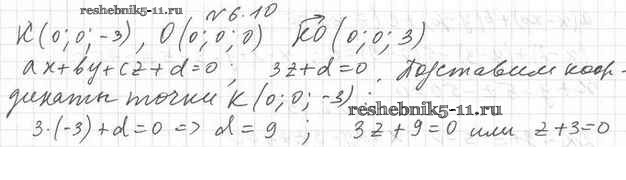 reshebnik5-11.ru
№6.10
K(0;0;-3), O(0;0;0) KO(0;0;3)
ax+by+cz+d=0; 3z+d=0. Подставим коор-
динаты точки K(0;0;-3):
reshebnik5-11.ru
3·(-3)+d=0 => d=9; 3z+9=0 или z+3=0